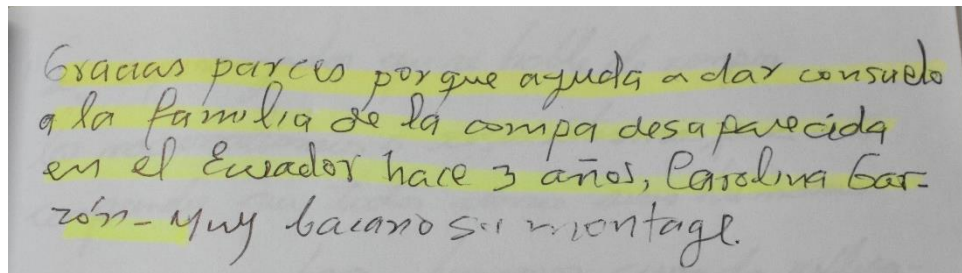 Gracias parces porque ayuda a dar consuelo
a la familia de la compa desaparecida
en el Ecuador hace 3 años, Carolina Gar-
zón- Muy bacano su montage.